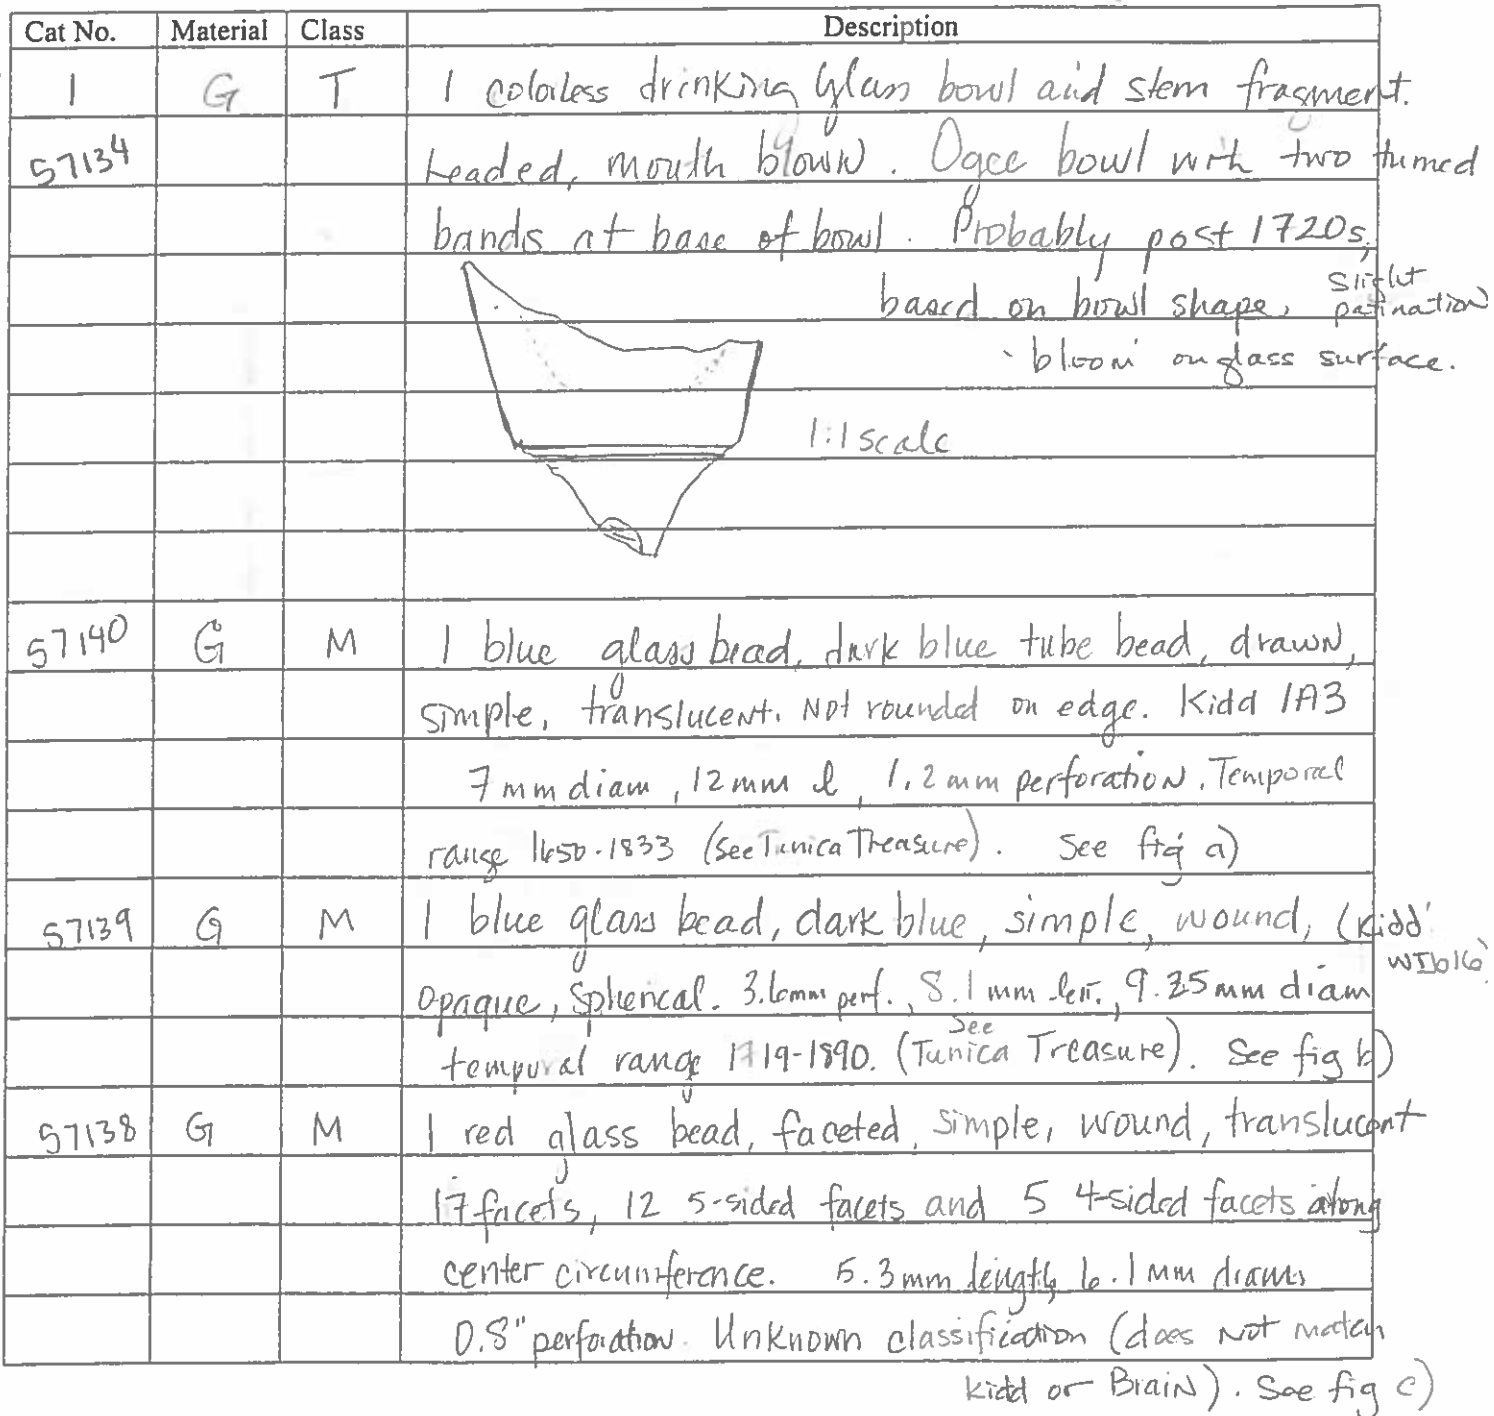 Cat No. Material Class Description
1 G T 1 colorless drinking glass bowl and stem fragment.
57134 Leaded, mouth blown. Ogee bowl with two turned
bands at base of bowl. Probably post 1720s,
based on bowl shape, slight patination
'bloom' on glass surface.
1:1 scale
57140 G M 1 blue glass bead, dark blue tube bead, drawn,
simple, translucent. Not rounded on edge. Kidd 1A3
7mm diam, 12mm l, 1.2mm perforation. Temporal
range 1650-1833 (see Tunica Treasure). See fig a)
57139 G M 1 blue glass bead, dark blue, simple, wound, (Kidd WIb16)
opaque, spherical. 3.6mm perf., 8.1mm len., 9.25mm diam
temporal range 1719-1890. (See Tunica Treasure). See fig b)
57138 G M 1 red glass bead, faceted, simple, wound, translucent
17 facets, 12 5-sided facets and 5 4-sided facets along
center circumference. 5.3mm length, 6.1mm diam,
0.8" perforation. Unknown classification (does not match
Kidd or Brain). See fig c)